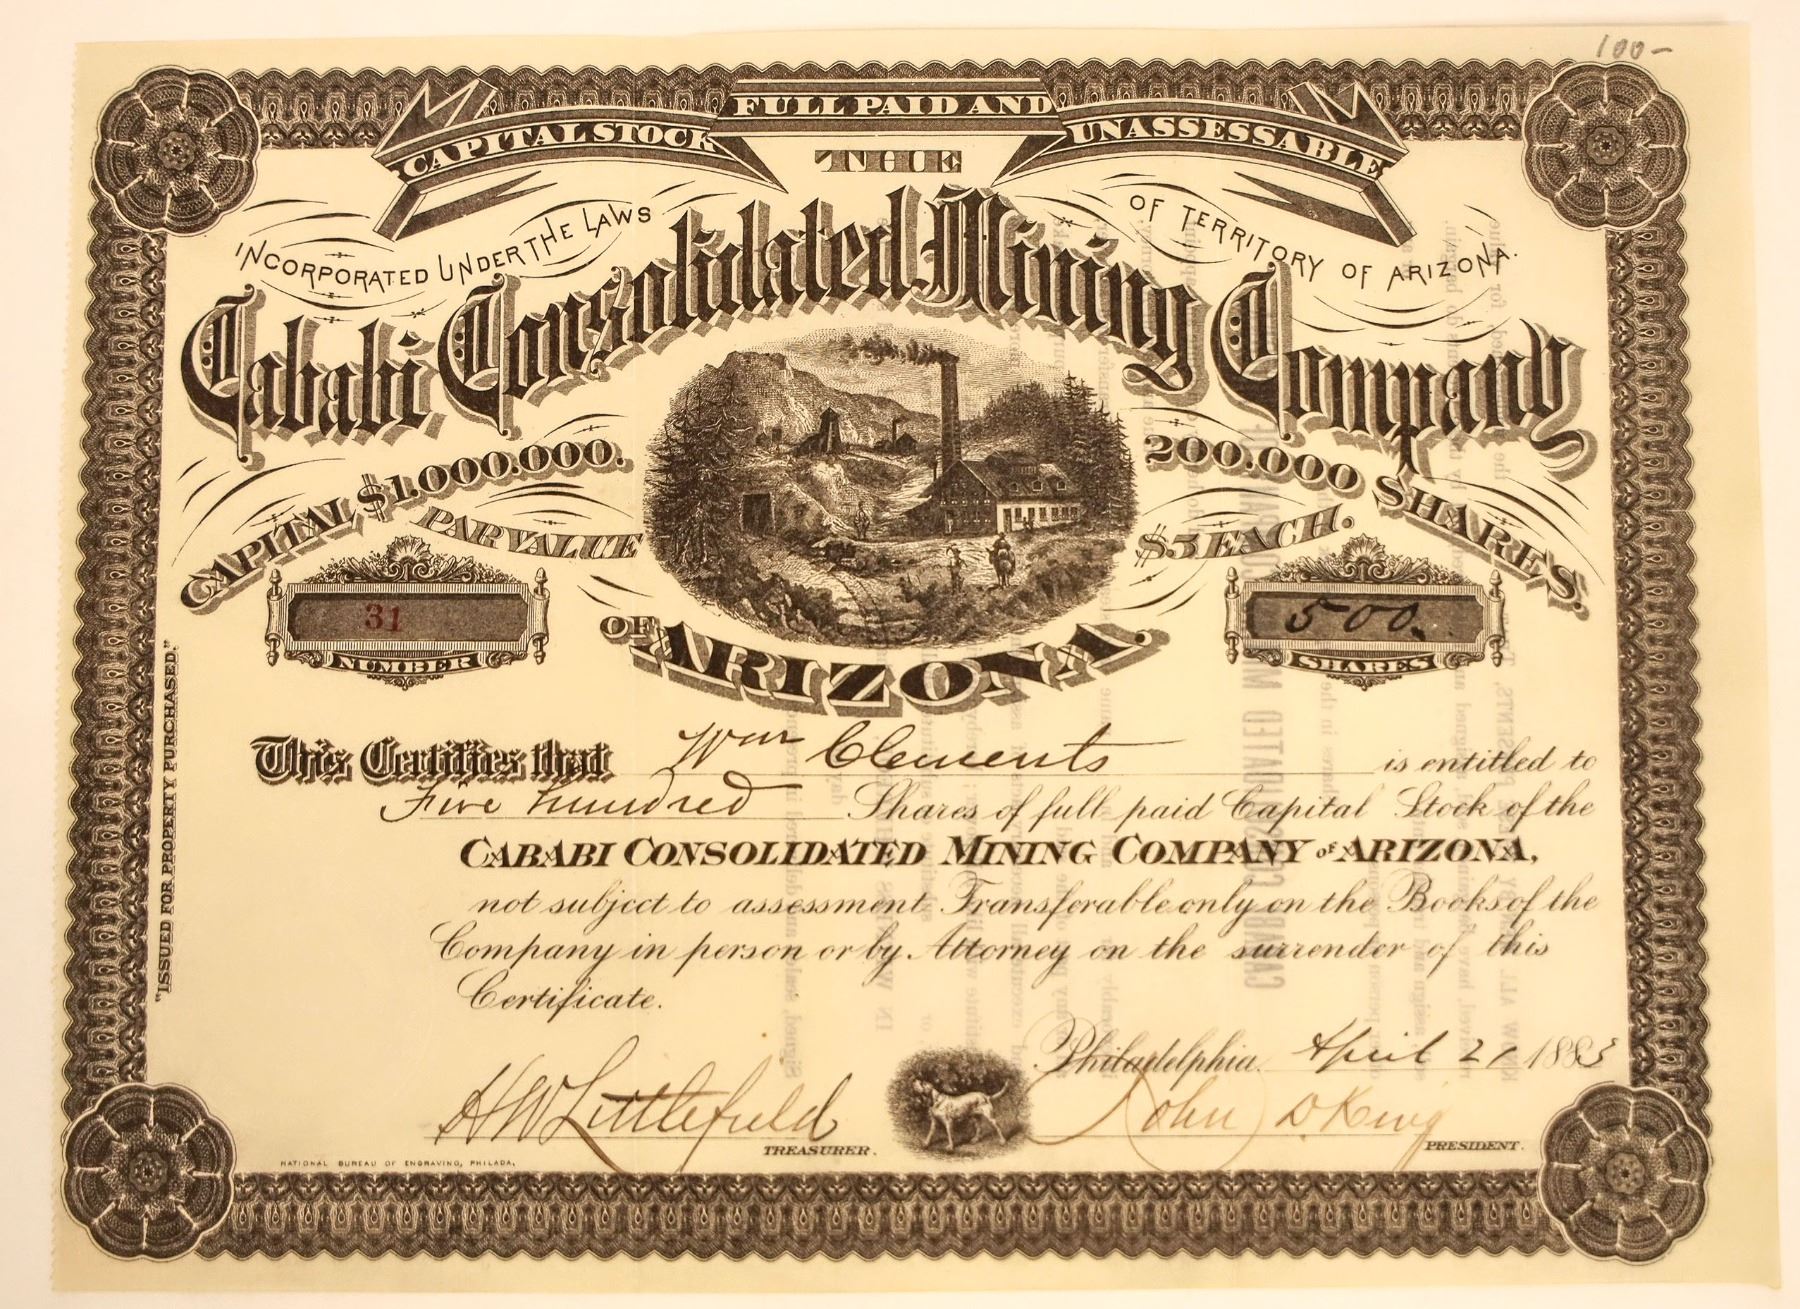 100-
CAPITAL STOCK FULL PAID AND UNASSESSABLE
THE
INCORPORATED UNDER THE LAWS OF TERRITORY OF ARIZONA.
Cababi Consolidated Mining Company
CAPITAL $1.000.000. 200.000 SHARES.
PAR VALUE $5 EACH.
OF ARIZONA.
31
NUMBER
500.
SHARES
"ISSUED FOR PROPERTY PURCHASED."
This Certifies that Wm Clements is entitled to
Five hundred Shares of full paid Capital Stock of the
CABABI CONSOLIDATED MINING COMPANY OF ARIZONA,
not subject to assessment Transferable only on the Books of the
Company in person or by Attorney on the surrender of this
Certificate.
Philadelphia. April 21 1883
HW Littlefield
TREASURER.
John D King
PRESIDENT.
NATIONAL BUREAU OF ENGRAVING, PHILADA.